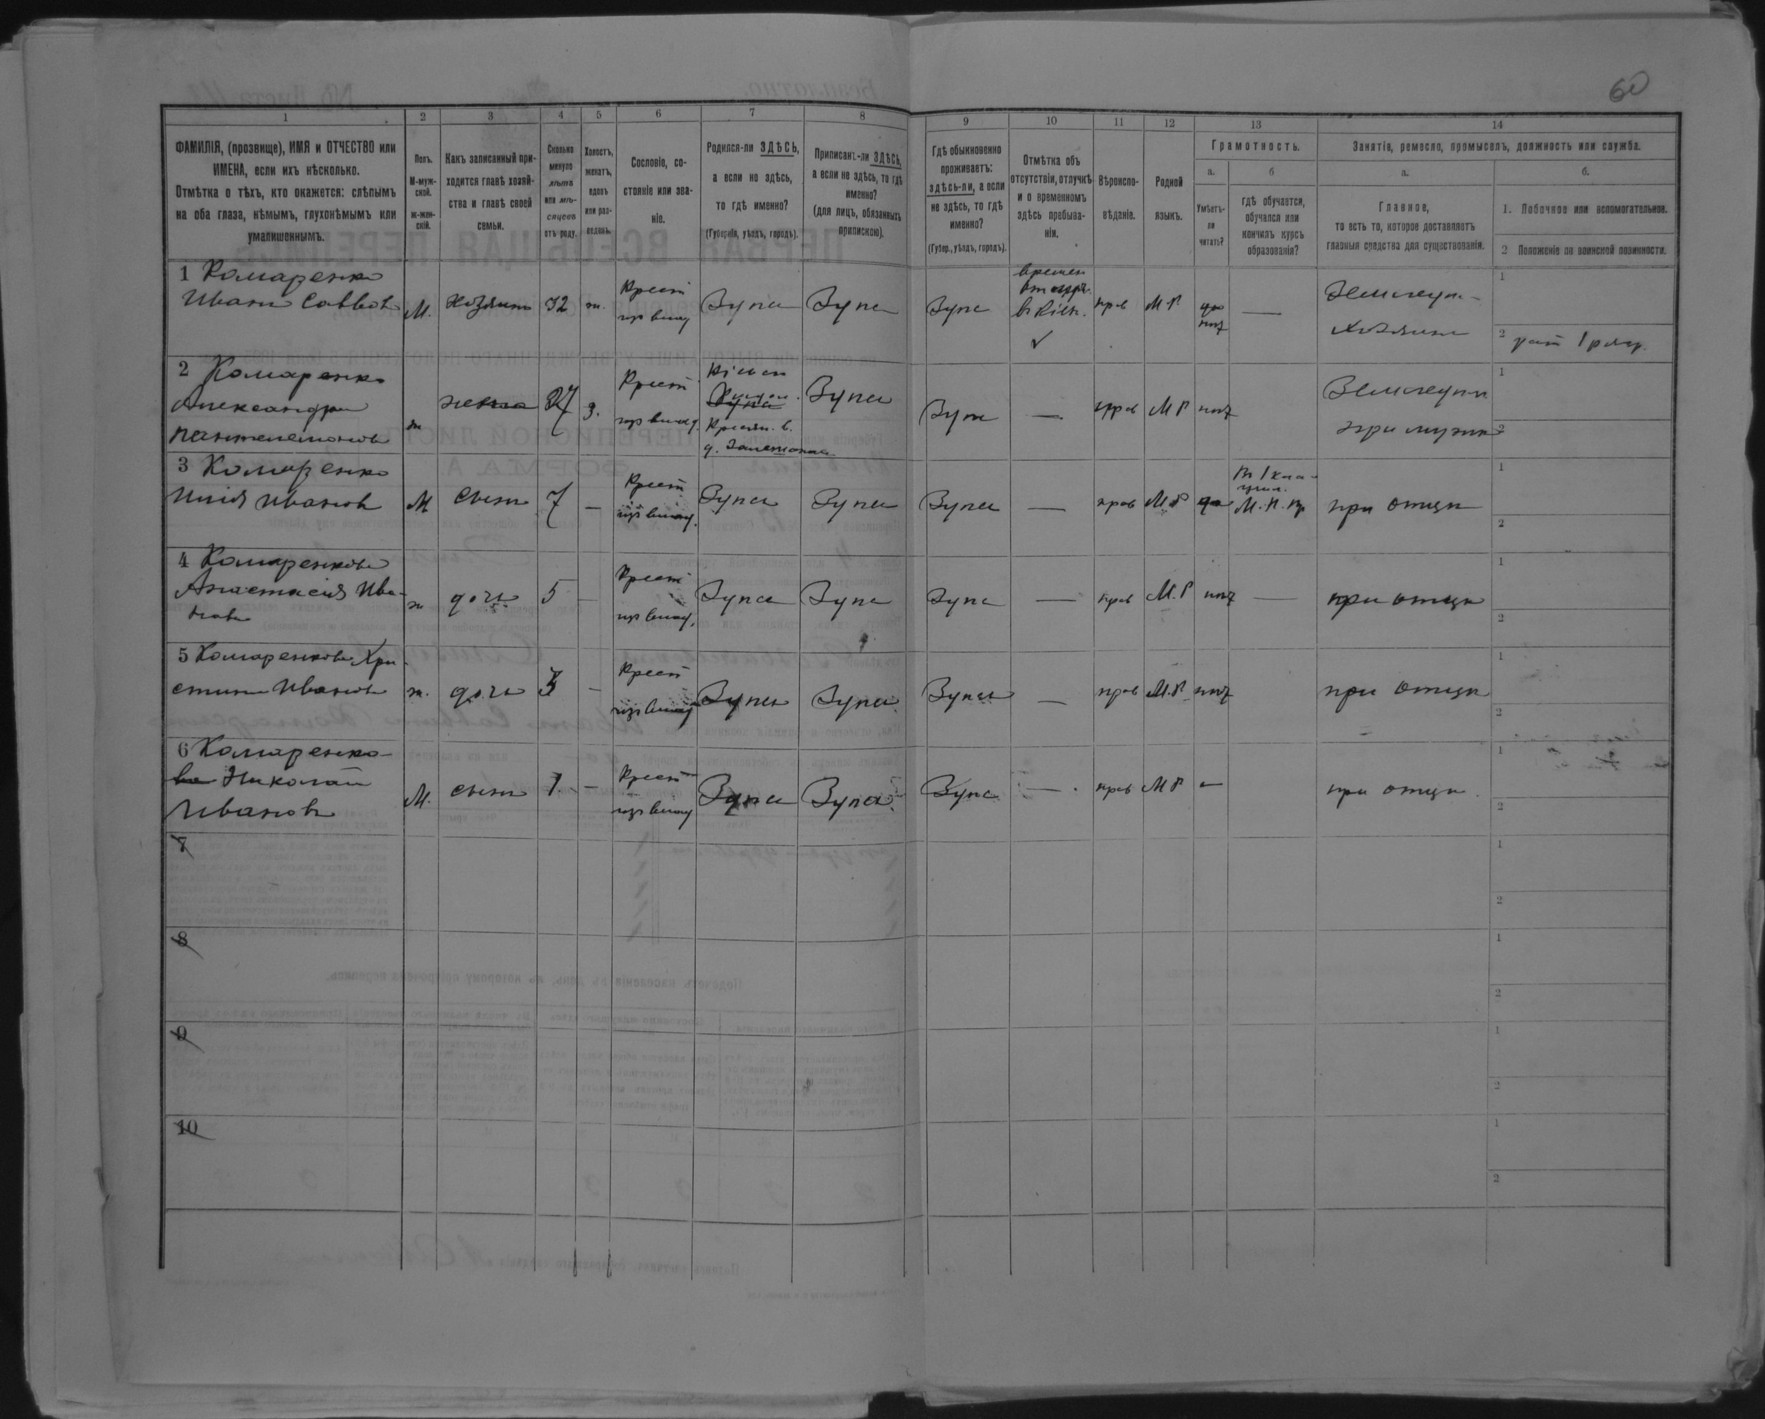 60
1 2 3 4 5 6 7 8 9 10 11 12 13 14
ФАМИЛІЯ, (прозвище), ИМЯ и ОТЧЕСТВО или
ИМЕНА, если ихъ нѣсколько.
Отмѣтка о тѣхъ, кто окажется: слѣпымъ
на оба глаза, нѣмымъ, глухонѣмымъ или
умалишеннымъ.
Полъ.
М-муж-
ской.
ж-жен-
скій.
Какъ записанный при-
ходится главѣ хозяй-
ства и главѣ своей
семьи.
Сколько
минуло
лѣтъ
или мѣ-
сяцевъ
отъ роду.
Холостъ,
женатъ,
вдовъ
или раз-
веденъ.
Сословіе, со-
стояніе или зва-
ніе.
Родился-ли ЗДѢСЬ,
а если не здѣсь,
то гдѣ именно?
(Губернія, уѣздъ, городъ).
Приписанъ-ли ЗДѢСЬ,
а если не здѣсь, то гдѣ
именно?
(для лицъ, обязанныхъ
припискою).
Гдѣ обыкновенно
проживаетъ:
здѣсь-ли, а если
не здѣсь, то гдѣ
именно?
(Губер., уѣздъ, городъ).
Отмѣтка объ
отсутствіи, отлучкѣ
и о временномъ
здѣсь пребыва-
ніи.
Вѣроиспо-
вѣданіе.
Родной
языкъ.
Грамотность.
а.
Умѣетъ-
ли
читать?
б
гдѣ обучается,
обучался или
кончилъ курсъ
образованія?
Занятіе, ремесло, промыселъ, должность или служба.
а.
Главное,
то есть то, которое доставляетъ
главныя средства для существованія.
б.
1. Побочное или вспомогательное.
2 Положеніе по воинской повинности.
1 Комаренко
Иванъ Саввовъ М. хозяинъ 32 ж. Крест Зупа Зупа Зупа прав М.Р. нѣт —
2
Комаренко
Александра
Пантелеймонов ж жена 27 з. Крест Зупа Зупа — прав М Р нѣт
при мужи
3 Комаренко
Илія Иванов М сынъ 7 — Крест Зупа Зупа Зупа — прав М.Р да при отци
4 Комаренкова
Анастасія Ива-
нова ж дочь 5 — Крест Зупа Зупа Зупа — прав М.Р нѣт — при отци
5 Комаренкова Хри-
стина Иванов ж. дочь 3 — Крест Зупа Зупа Зупа — прав М.Р нѣт при отци
6 Комаренко-
ва Николай
Иванов М. сынъ 1. — Крест Зупа Зупа Зупа — прав М Р — при отци
7
8
9
10